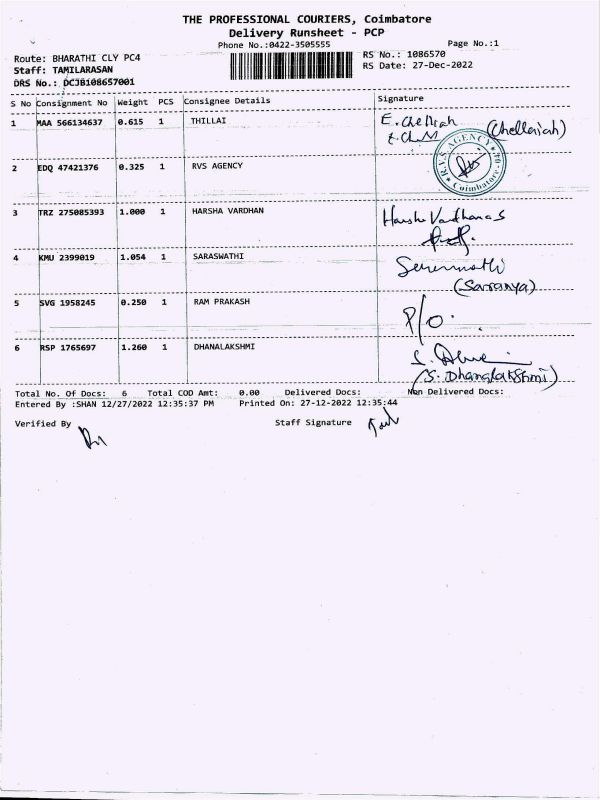 THE PROFESSIONAL COURIERS, Coimbatore
Delivery Runsheet - PCP
Phone No.:0422-3505555
Page No.:1
Route: BHARATHI CLY PC4
RS No.: 1086570
Staff: TAMILARASAN
RS Date: 27-Dec-2022
DRS No.: DCJB108657001
S No Consignment No Weight PCS Consignee Details Signature
1 MAA 566134637 0.615 1 THILLAI E. Chelliah
(Chellaiah)
2 EDQ 47421376 0.325 1 RVS AGENCY R.V.S. AGENCY Coimbatore
3 TRZ 275085393 1.000 1 HARSHA VARDHAN Harsha Vardhana S
4 KMU 2399019 1.054 1 SARASWATHI
(Saranya)
5 SVG 1958245 0.250 1 RAM PRAKASH P/o.
6 RSP 1765697 1.260 1 DHANALAKSHMI
(S. Dhanalakshmi)
Total No. Of Docs: 6 Total COD Amt: 0.00 Delivered Docs: Non Delivered Docs:
Entered By :SHAN 12/27/2022 12:35:37 PM Printed On: 27-12-2022 12:35:44
Verified By Staff Signature